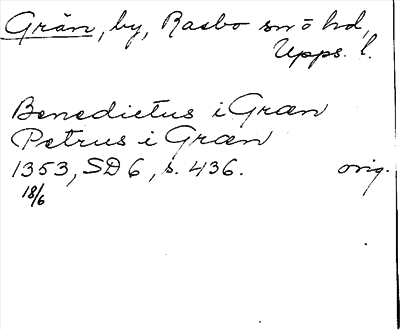 Grän, by, Rasbo sn o hd,
Upps. l.
Benedictus i Græn
Petrus i Græn
1353, SD 6, s. 436. orig.
18/6